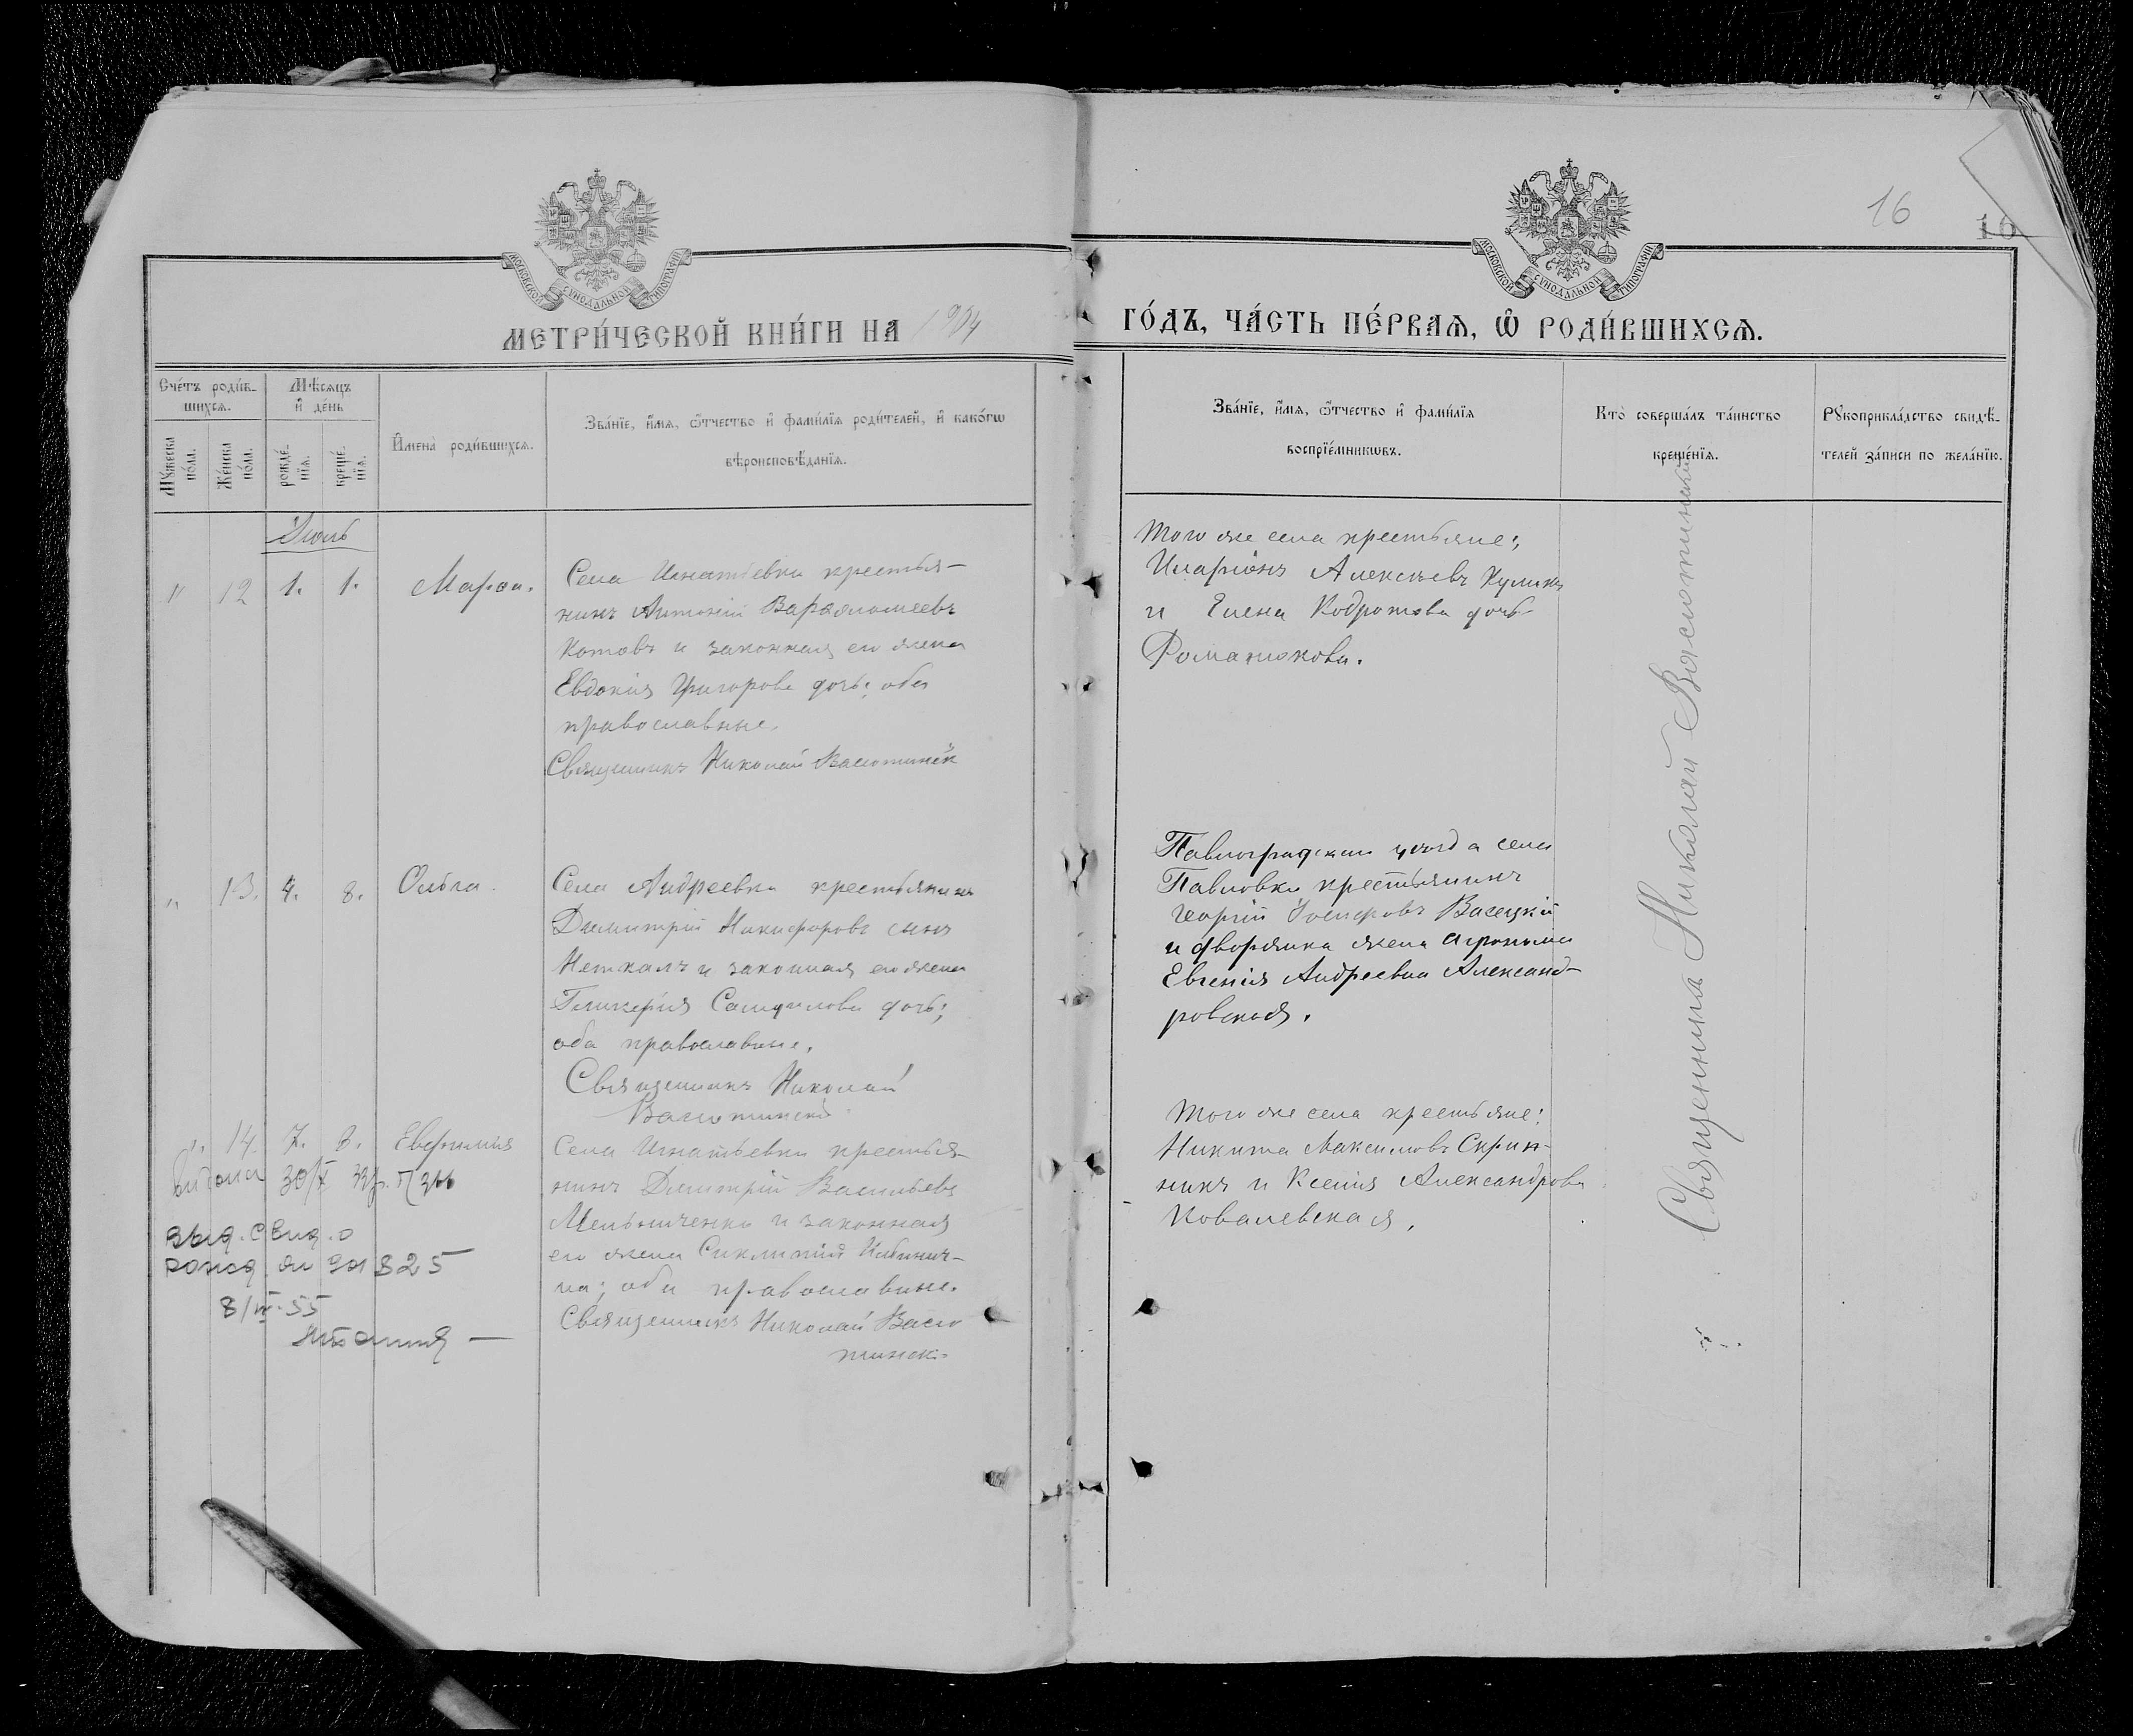 16
16
МОСКОВСКОЙ СУНОДАЛЬНОЙ ТИПОГРАФІИ
МОСКОВСКОЙ СУНОДАЛЬНОЙ ТИПОГРАФІИ
МЕТРИ́ЧЕСКОЙ КНИ́ГИ НА 1904
ГО́ДЪ, ЧА́СТЬ ПЕ́РВАѦ, Ѽ РОДИ́ВШИХСѦ.
Сче́тъ роди́в-
шихсѧ.
Мѣ́сѧцъ
и҆ де́нь
Мꙋ́жеска
по́ла.
Же́нска
по́ла.
рожде́-
нїѧ.
креще́-
нїѧ.
И҆мена̀ роди́вшихсѧ.
Зва́нїе, и҆́мѧ, ѻ҆́тчество и҆ фами́лїѧ роди́телей, и҆ како́гѡ
вѣроисповѣ́данїѧ.
Зва́нїе, и҆́мѧ, ѻ҆́тчество и҆ фами́лїѧ
воспрїе́мникѡвъ.
Кто̀ соверша́лъ та́инство
креще́нїѧ.
Рꙋкоприкла́дство свидѣ́-
телей за́писи по жела́нїю.
Іюль
" 12 1. 1. Марѳа.
Села Игнатьевки крестья-
нинъ Антоній Варѳоломеевъ
Котовъ и законная его жена
Евдокія Григорова дочь; оба
православные.
Священникъ Николай Васютинск
Того же села крестьяне:
Иларіонъ Алексѣевъ Куликъ
и Елена Кодратова дочь
Романюкова.
" 13. 4. 8. Ольга.
Села Андреевки крестьянинъ
Димитрій Никифоровъ сынъ
Неткалъ и законная его жена
Гликерія Самуилова дочь;
оба православные.
Священникъ Николай
Васютинскій
Павлоградскаго уѣзда села
Павловки крестьянинъ
Георгій Іосифовъ Васецкій
и дворянка жена агронома
Евгенія Андреевна Александ-
ровская.
" 14. 7. 8. Евфимія
Села Игнатьевки крестья-
нинъ Димитрій Васильевъ
Мельниченко и законная
его жена
на; оба православные.
Священникъ Николай Васю
тинск.
Того же села крестьяне:
Никита Максимовъ Скрин-
никъ и Ксенія Александрова
Ковалевская.
30/X
выд. свид. о
рожд.
825
8/ 55
Священникъ Николай Васютинскій